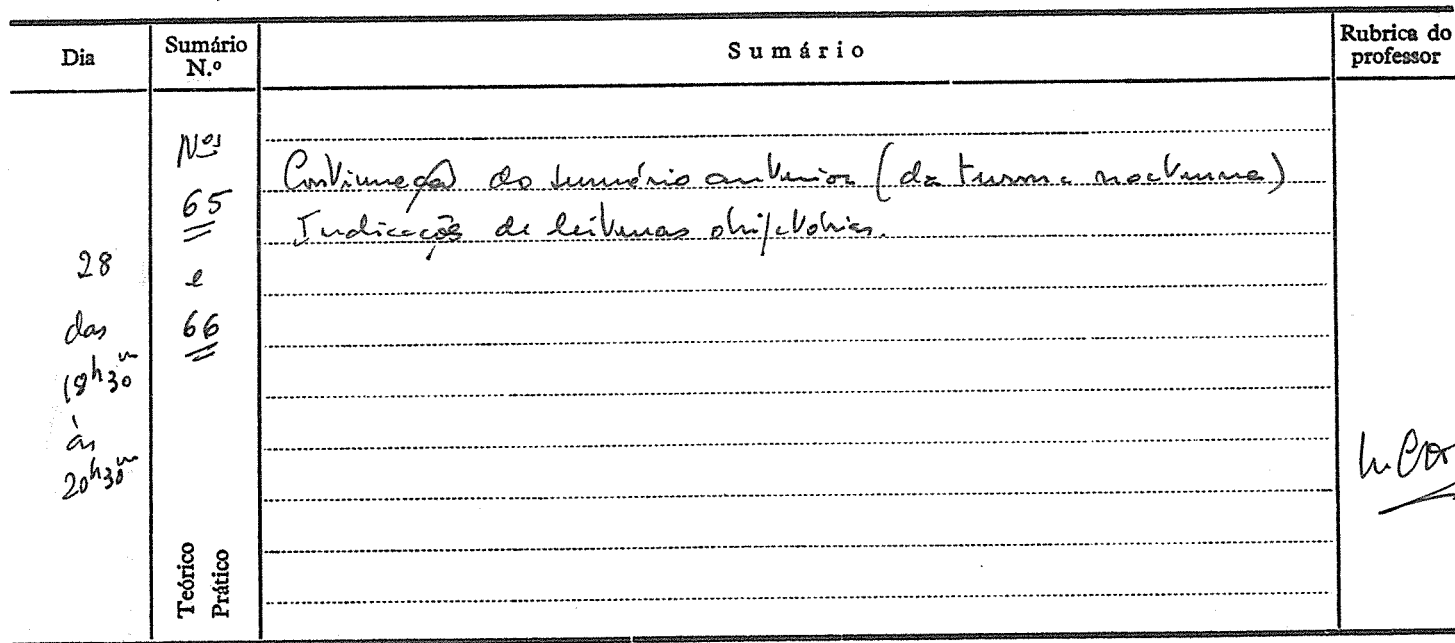 Dia
Sumário
N.º
Sumário
Rubrica do
professor
28
das
18h30m
às
20h30m
Nos
65
e
66
Teórico
Prático
Continuação do sumário anterior (da turma nocturna)
Indicação de leituras obrigatórias.